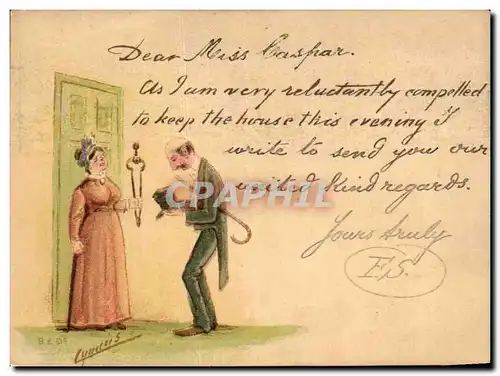 Dear Miss Caspar.
As I am very reluctantly compelled
to keep the house this evening I
write to send you our
united kind regards.
CPHRIL
Yours truly
F.S.
Cynicus